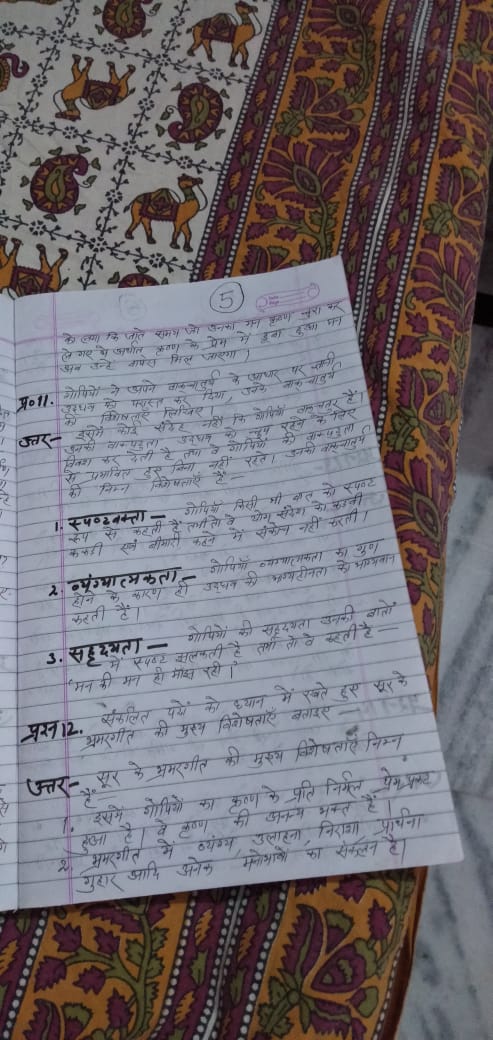 5
के लगा कि जाते समय जो उनका मन कृष्ण चुरा कर
ले गए थे अर्थात कृष्ण के प्रेम में डूबा हुआ मन
अब उन्हें वापस मिल जाएगा।
प्र० 11. गोपियों ने अपने वाक्चातुर्य के आधार पर ज्ञानी
उद्धव को परास्त कर दिया, उनके वाक्चातुर्य
की विशेषताएँ लिखिए।
उत्तर- इसमें कोई संदेह नहीं कि गोपियाँ वाक्चतुर हैं।
उनकी वाक्पटुता उद्धव को चुप रहने के लिए
विवश कर देती है तथा वे गोपियों की वाक्पटुता
से प्रभावित हुए बिना नहीं रहते। उनकी वाक्चातुर्य
की निम्न विशेषताएँ हैं-
1. स्पष्टवक्ता - गोपियाँ किसी भी बात को स्पष्ट
रूप से कहती हैं तभी तो वे योग संदेश को कड़वी
ककड़ी एवं बीमारी कहने में संकोच नहीं करती।
2. व्यंग्यात्मकता - गोपियाँ व्यंग्यात्मकता का गुण
होने के कारण ही उद्धव की भाग्यहीनता को भाग्यवान
कहती हैं।
3. सहृदयता - गोपियों की सहृदयता उनकी बातों
में स्पष्ट झलकती है तभी तो वे कहती हैं -
'मन की मन ही माँझ रही।'
प्रश्न 12. संकलित पदों को ध्यान में रखते हुए सूर के
भ्रमरगीत की मुख्य विशेषताएँ बताइए
उत्तर- सूर के भ्रमरगीत की मुख्य विशेषताएँ निम्न
हैं-
1. इसमें गोपियों का कृष्ण के प्रति निर्मल प्रेम प्रकट
हुआ है। वे कृष्ण की अनन्य भक्त हैं।
2. भ्रमरगीत में व्यंग्य, उलाहना, निराशा, प्रार्थना
गुहार आदि अनेक मनोभावों का संकलन है।